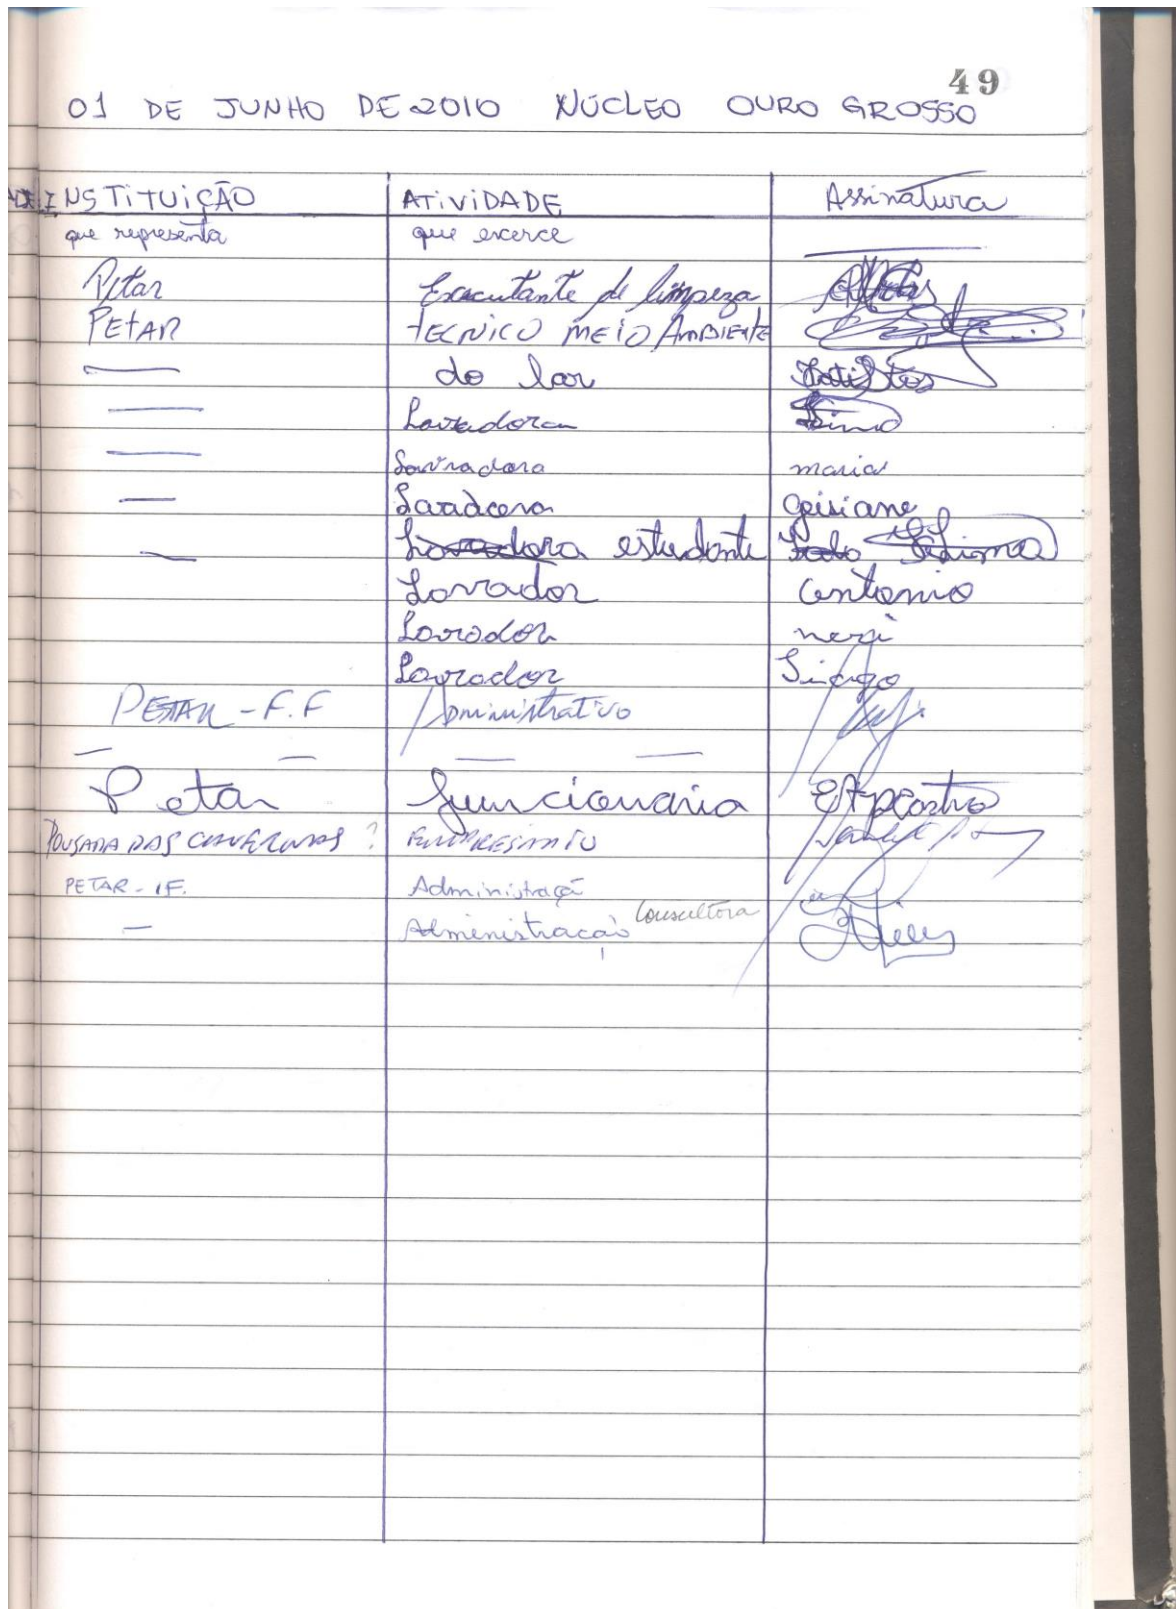 49
01 DE JUNHO DE 2010 NÚCLEO OURO GROSSO
INSTITUIÇÃO ATIVIDADE Assinatura
que representa que exerce
Petar Executante de limpeza
PETAR TECNICO MEIO AMBIENTE
do lar
Lavradora
Lavradora maria
Lavradora Geisiane
Lavradora estudante
Lavrador Antonio
Lavrador neri
Lavrador
PETAR - F.F Administrativo
Petar funcionaria
POUSADA DAS CAVERNAS EMPRESÁRIO
PETAR - IF. Administraçã
— Administração Consultora